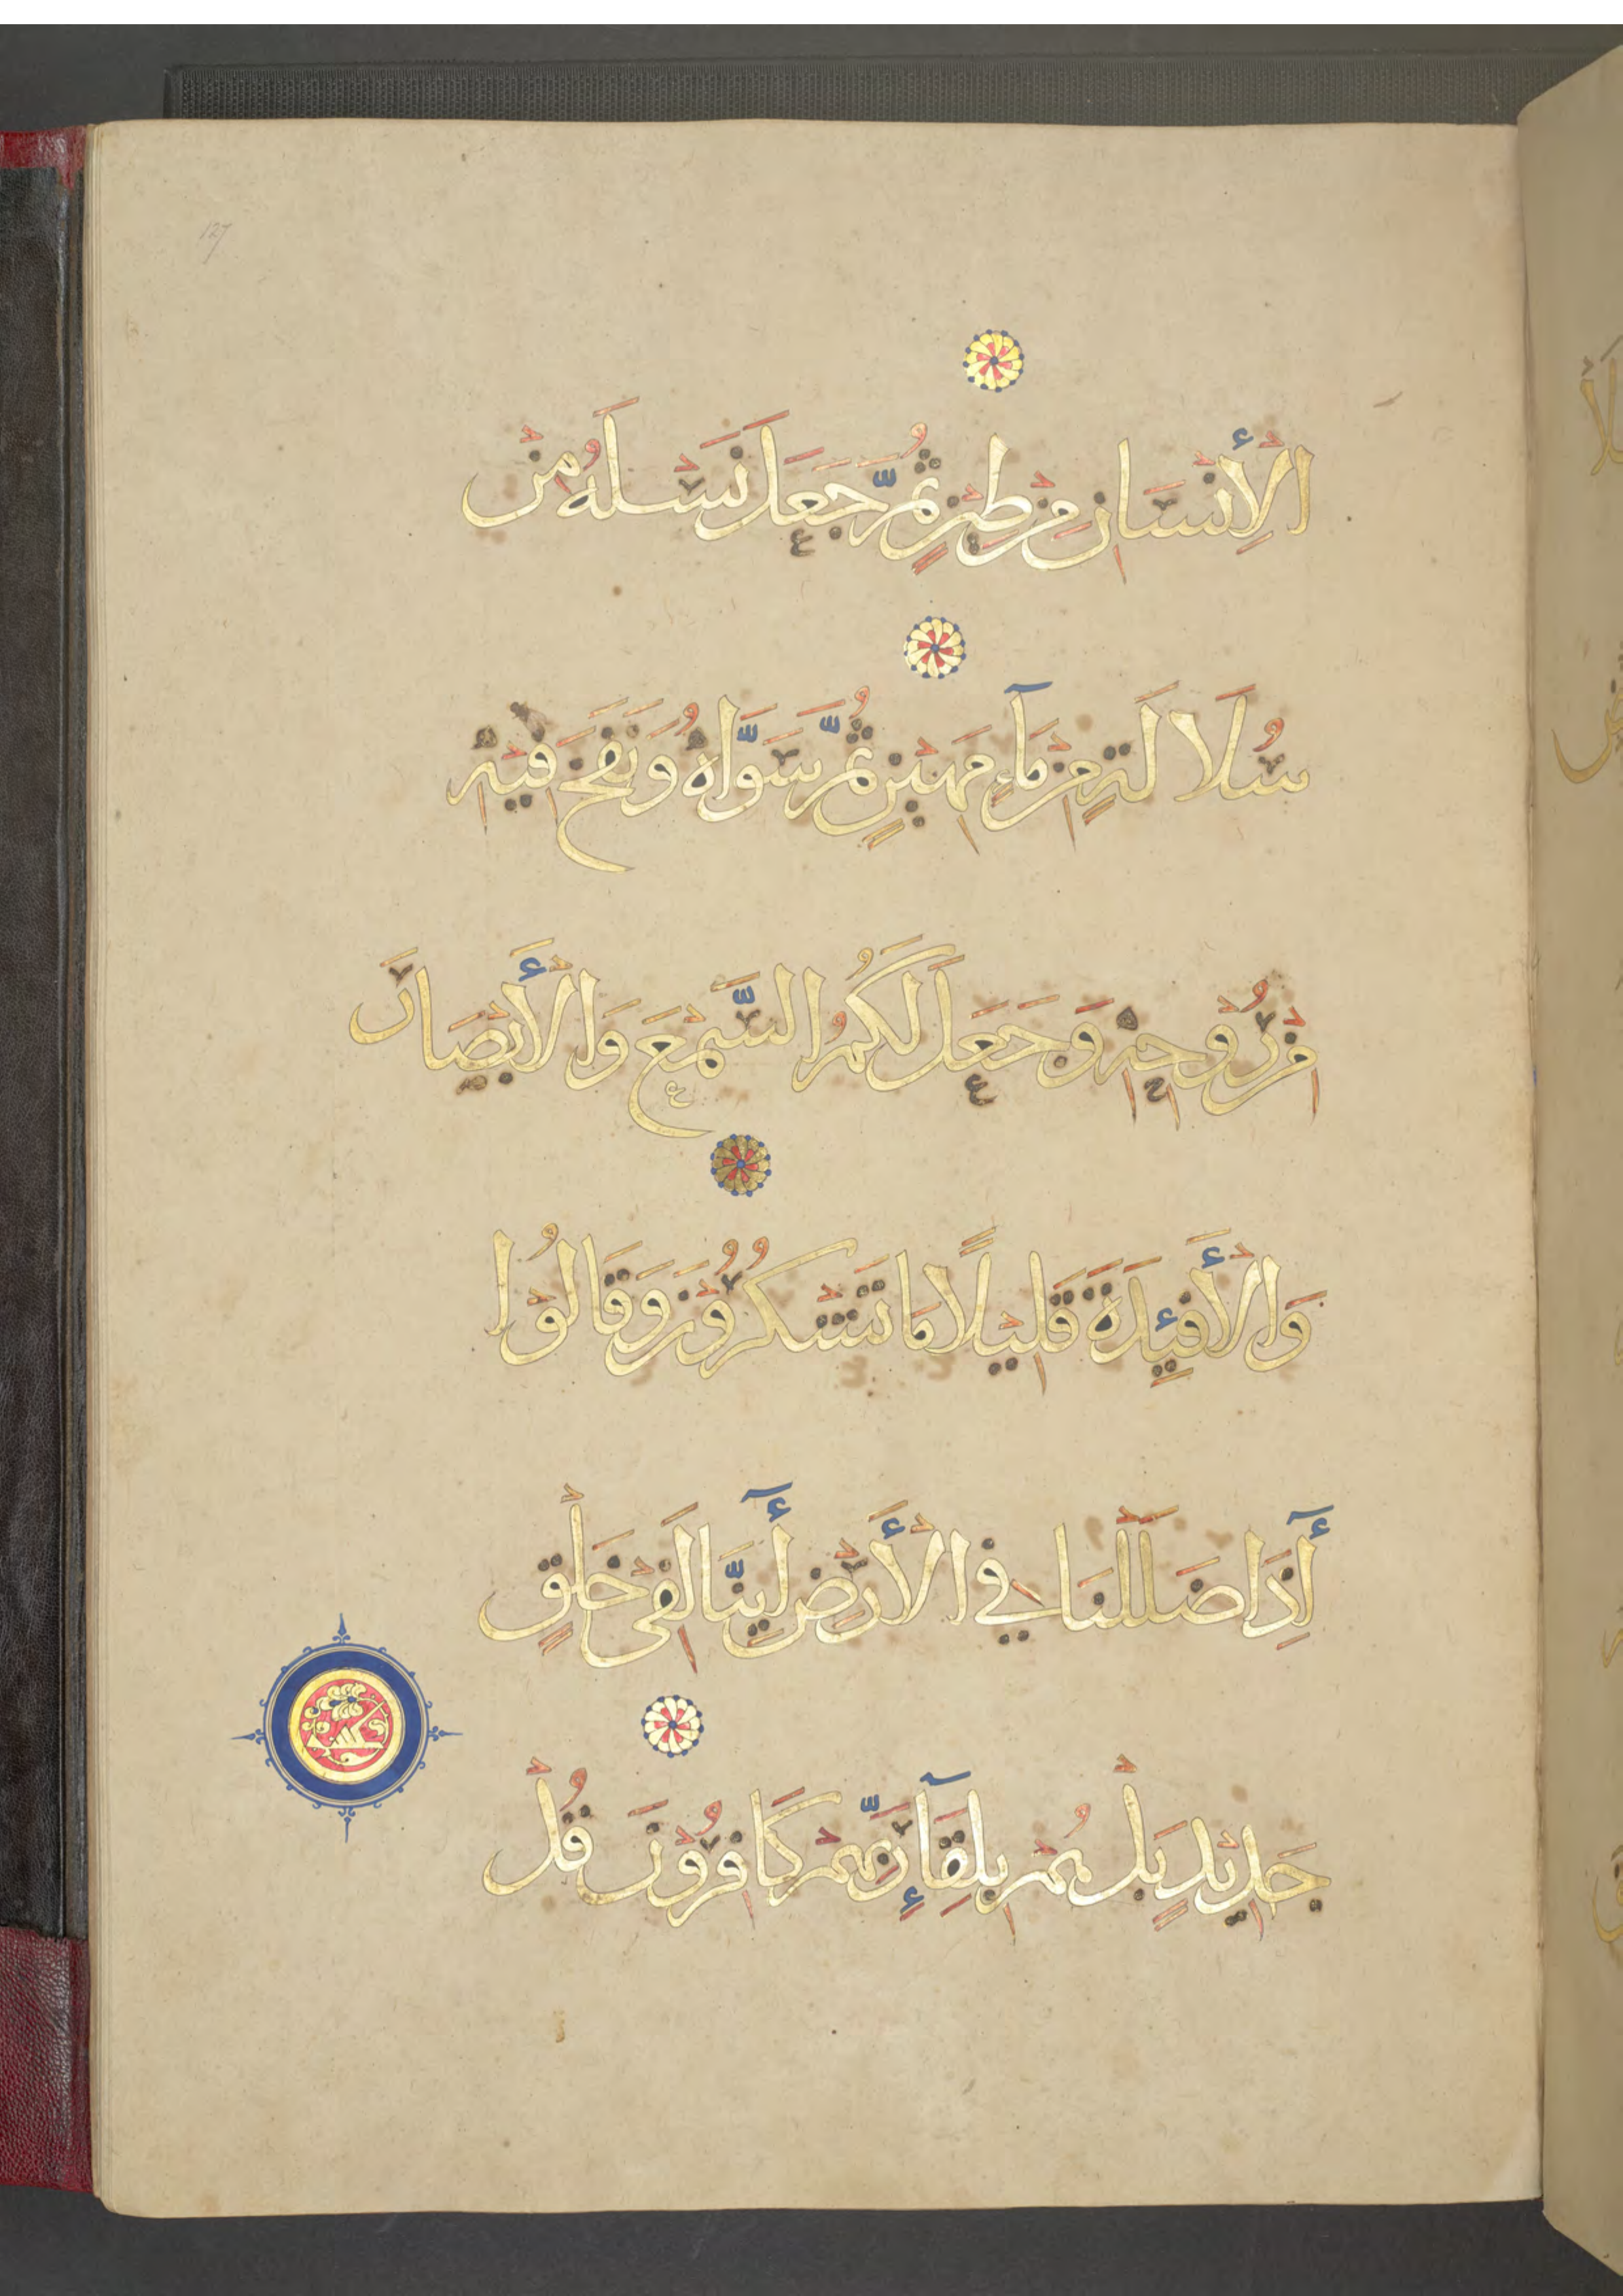 127
الْأِنْسَانِ مِنْ طِيْنٍ ثُمَّ جَعَلَ نَسْلَهُ مِنْ
سُلَالَةٍ مِنْ مَآءٍ مَهِيْنٍ ثُمَّ سَوَّاهُ وَنَفَخَ فِيْهِ
مِنْ رُوْحِهِ وَجَعَلَ لَكُمُ السَّمْعَ وَالْأَبْصَارَ
وَالْأَفْئِدَةَ قَلِيْلًا مَا تَشْكُرُوْنَ وَقَالُوْا
أَإِذَا ضَلَلْنَا فِي الْأَرْضِ أَإِنَّا لَفِىْ خَلْقٍ
جَدِيْدٍ بَلْ هُمْ بِلِقَآءِ رَبِّهِمْ كَافِرُوْنَ قُلْ